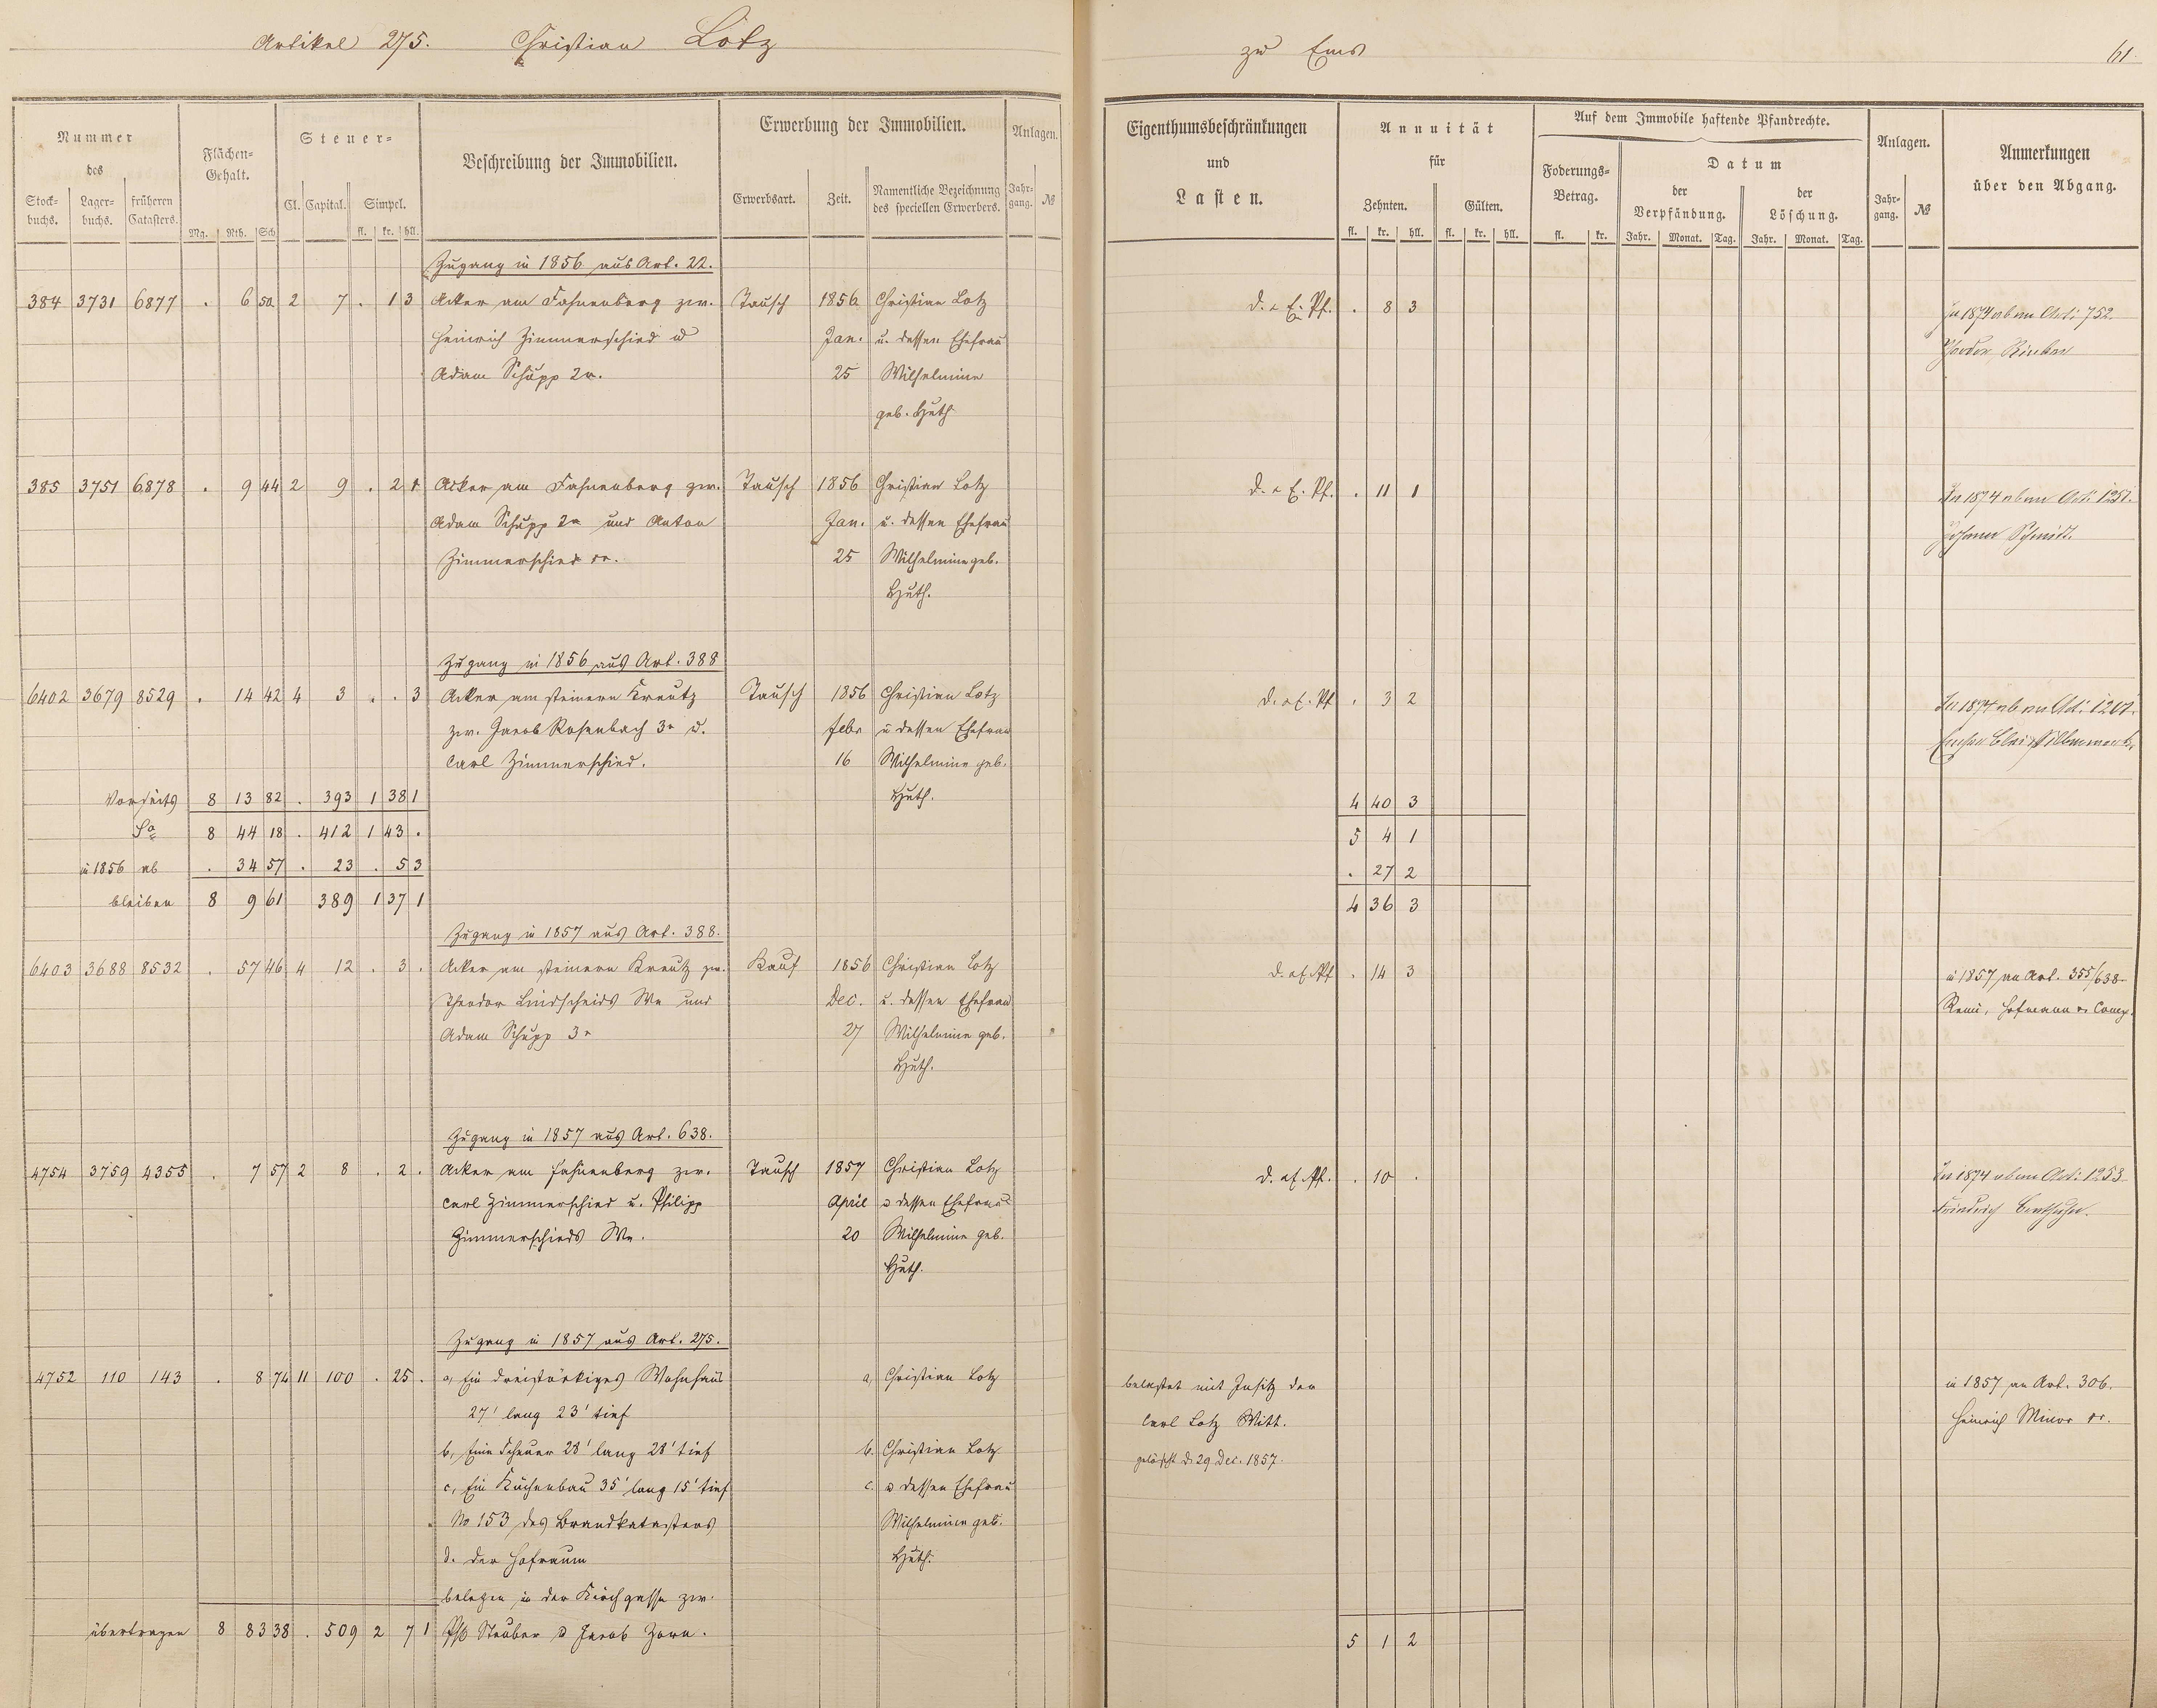 Artikel 275. Christian Lotz
zu Ems
61.
Nummer des
Stock-buchs. Lager-buchs. früheren Catasters.
Flächen-Gehalt.
Mg. Rth. Sch
Steuer-
Cl. Capital. Simpel.
fl. kr. hll.
Beschreibung der Immobilien.
Erwerbung der Immobilien.
Erwerbsart. Zeit. Namentliche Bezeichnung des speciellen Erwerbers.
Anlagen.
Jahr-gang. №
Eigenthumsbeschränkungen
und
Lasten.
Annuität
für
Zehnten. Gülten.
fl. kr. hll. fl. kr. hll.
Auf dem Immobile haftende Pfandrechte.
Foderungs-Betrag.
fl. kr.
Datum
der Verpfändung. der Löschung.
Jahr. Monat. Tag. Jahr. Monat. Tag.
Anlagen.
Jahr-gang. №
Anmerkungen
über den Abgang.
Zugang in 1856 aus Art. 22.
384 3731 6877 . 6 50 2 7 . 1 3 Acker am Fahnenberg zw. Tausch 1856 Christian Lotz d. Pf. . 8 3 In 1874 ab an Art: 752.
Heinrich Zimmerschied u Jan. u. dessen Ehefrau
Adam Schupp 2r. 25 Wilhelmine
geb. Huth
385 3751 6878 . 9 44 2 9 . 2 1 Acker am Fahnenberg zw. Tausch 1856 Christian Lotz d. Pf. . 11 1 In 1874 ab an Art: 1251.
Adam Schupp 2r und Anton Jan. u. dessen Ehefrau Johann Schmidt.
Zimmerschied 25 Wilhelmine geb.
Huth.
Zugang in 1856 aus Art. 388
6402 3679 8529 . 14 42 4 3 . . 3 Acker am steinern Kreutz Tausch 1856 Christian Lotz d. Pf . 3 2 In 1874 ab an Art:
zw. Jacob Rosenbach 3r u. Febr u dessen Ehefrau
Carl Zimmerschied. 16 Wilhelmine geb.
Vorseits 8 13 82 . 393 1 38 1 Huth. 4 40 3
Sa 8 44 18 . 412 1 43 . 5 4 1
in 1856 ab . 34 57 . 23 . 5 3 . 27 2
bleiben 8 9 61 389 1 37 1 4 36 3
Zugang in 1857 aus Art. 388.
6403 3688 8532 . 57 46 4 12 . 3 . Acker am steinern Kreutz zw. Kauf 1856 Christian Lotz d. Pf . 14 3 in 1857 an Art. 355/638.
Theodor Linscheids We und Dec. u. dessen Ehefrau Remi, Hofmann & Comp.
Adam Schupp 3r 27 Wilhelmine geb.
Huth.
Zugang in 1857 aus Art. 638.
4754 3759 4355 . 7 57 2 8 . 2 . Acker am Fahnenberg zw. Tausch 1857 Christian Lotz d. Pf. . 10 . In 1874 ab an Art: 1253.
Carl Zimmerschied u. Philipp April u dessen Ehefrau Friedrich
Zimmerschieds We. 20 Wilhelmine geb.
Huth.
Zugang in 1857 aus Art. 275.
4752 110 143 . 8 74 11 100 . 25 . a, Ein dreistöckiges Wohnhaus a, Christian Lotz belastet mit Insitz der in 1857 an Art. 306.
27' lang 23' tief Carl Lotz Witt. Heinrich Minor
b, Eine Scheuer 28' lang 28' tief b. Christian Lotz gelöscht d. 29 Dec. 1857.
c, Ein Küchenbau 35' lang 15' tief c. u dessen Ehefrau
No 153 des Brandkatasters Wilhelmine geb.
d. der Hofraum Huth.
belegen in der Kirchgasse zw.
übertragen 8 83 38 . 509 2 7 1 Steuber u Jacob Zorn. 5 1 2